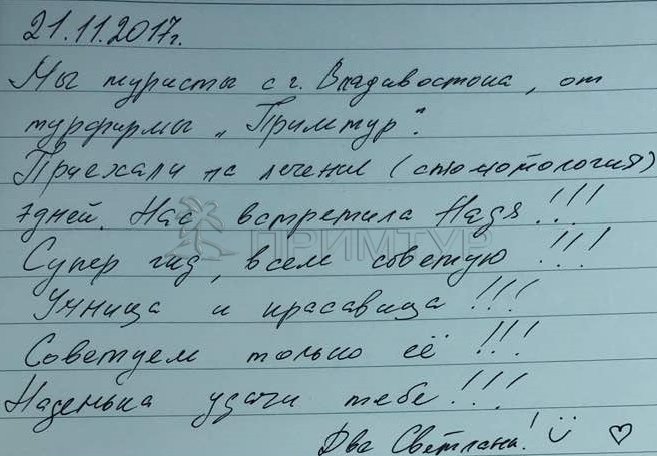 21.11.2017г.
Мы туристы с г. Владивостока, от
турфирмы „Примтур".
Приехали на лечение (стоматология)
7дней. Нас встретила Надя!!!
ПРИМТУР
Супер гид, всем советую!!!
Умница и красавица!!!
Советуем только её!!!
Наденька удачи тебе!!!
Два Светлана!